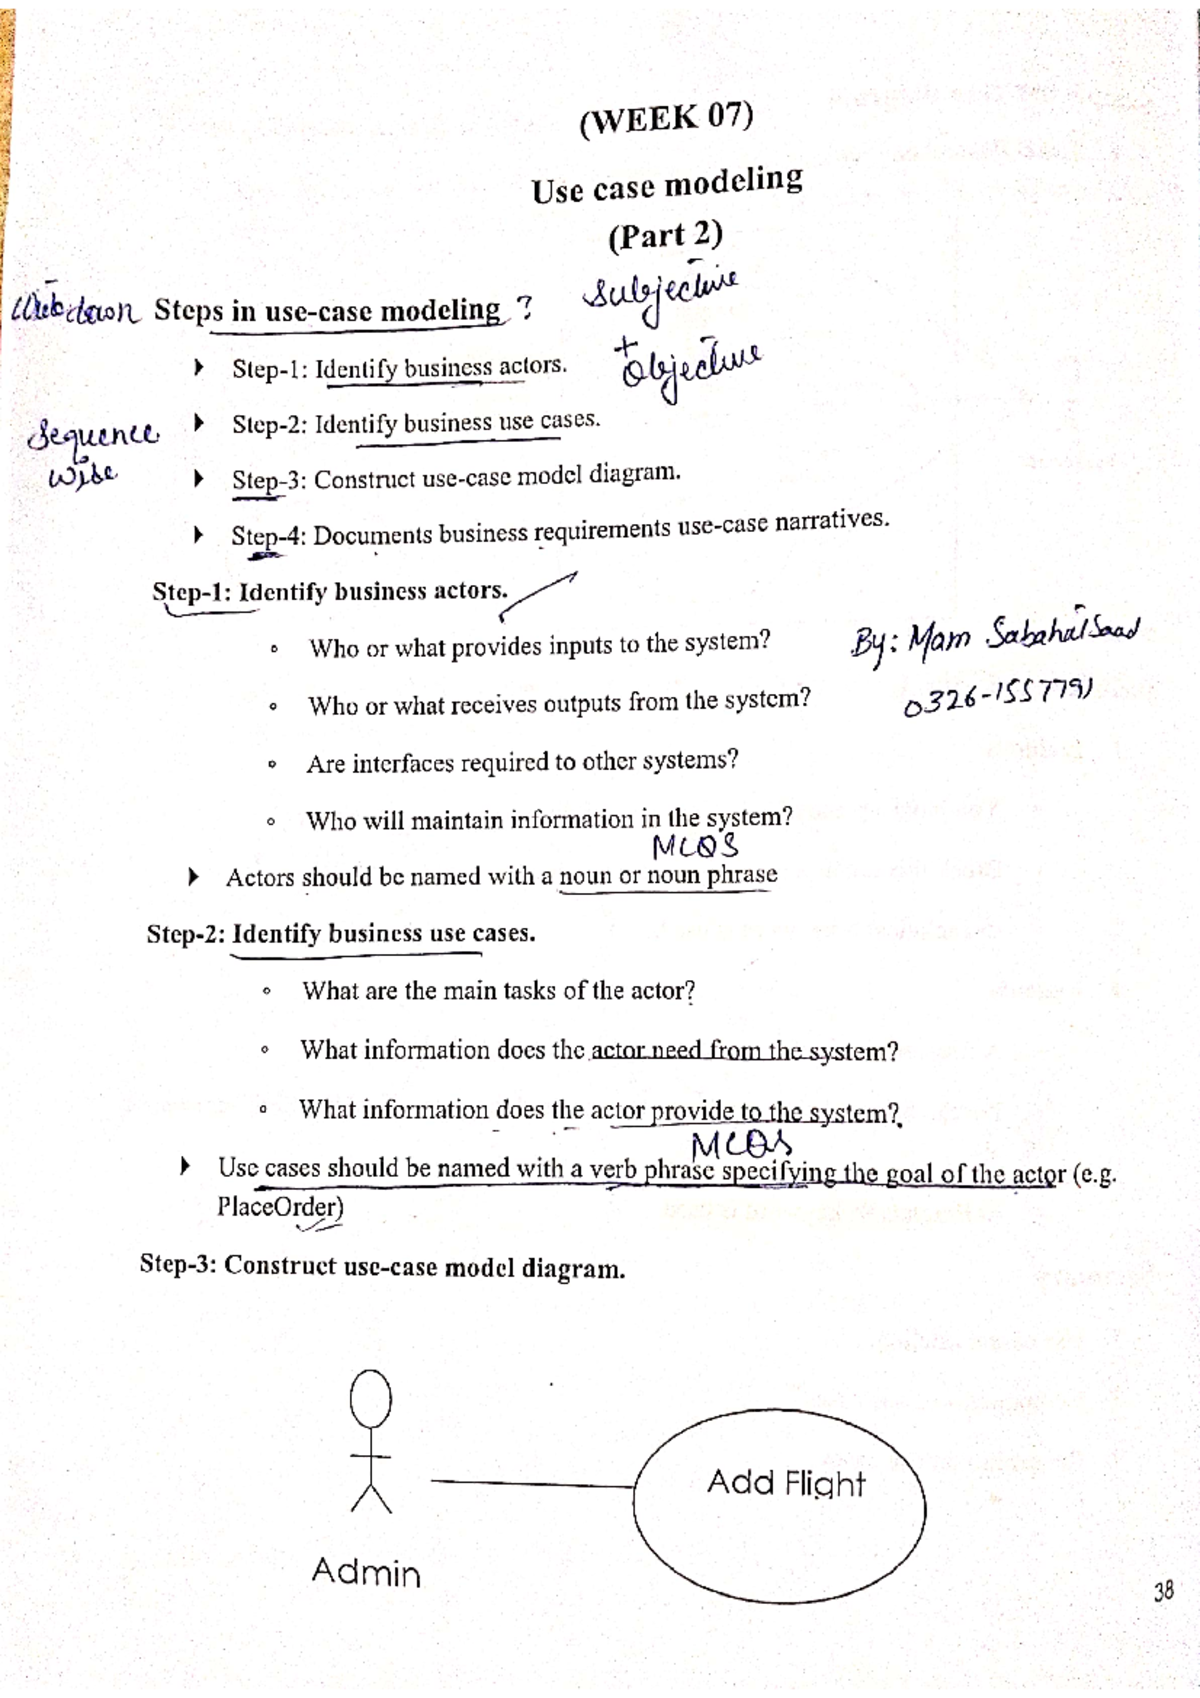 (WEEK 07)
Use case modeling
(Part 2)
Steps in use-case modeling ?
Subjective
+
Objective
Step-1: Identify business actors.
Step-2: Identify business use cases.
Sequence
wise
Step-3: Construct use-case model diagram.
Step-4: Documents business requirements use-case narratives.
Step-1: Identify business actors.
Who or what provides inputs to the system?
By: Mam Sabahat Saad
Who or what receives outputs from the system?
0326-1557791
Are interfaces required to other systems?
Who will maintain information in the system?
MCQS
Actors should be named with a noun or noun phrase
Step-2: Identify business use cases.
What are the main tasks of the actor?
What information does the actor need from the system?
What information does the actor provide to the system?
MCQS
Use cases should be named with a verb phrase specifying the goal of the actor (e.g.
PlaceOrder)
Step-3: Construct use-case model diagram.
Add Flight
Admin
38